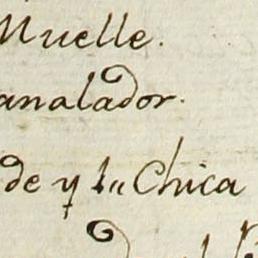 Muelle.
analador.
de y la Chica